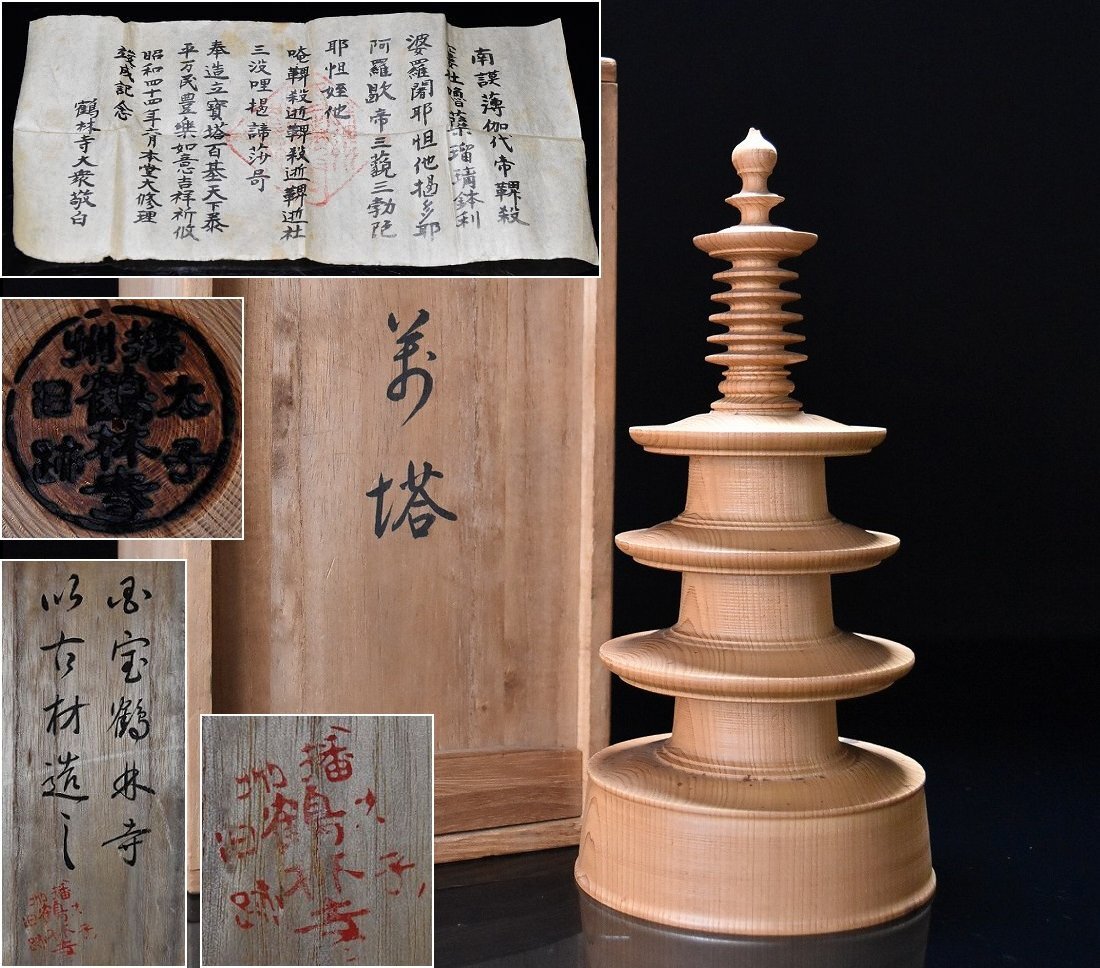 南謨薄伽代帝鞞殺
社嚕薜瑠璃鉢利
婆羅闍耶怛他揭多耶
阿羅歇帝三藐三勃陀
耶怛姪他
唵鞞殺逝鞞殺逝鞞逝社
三没哩揭諦莎呺
奉造立寶塔百基天下泰
平万民豊樂如意吉祥祈攸
昭和四十四年六月本堂大修理
竣成記念
鶴林寺大衆敬白
萬塔
播州
太子
鶴林寺
旧跡
国宝鶴林寺
以古材造之
播州
太子
鶴林寺
旧跡
播州
太子
鶴林寺
旧跡